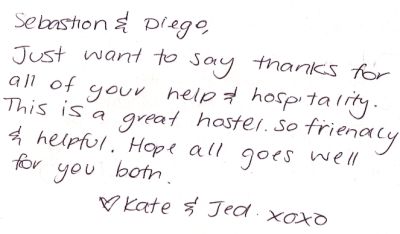 Sebastion & Diego,
Just want to say thanks for
all of your help & hospitality.
This is a great hostel. so friendly
& helpful. Hope all goes well
for you both.
♡ Kate & Jed. xoxo